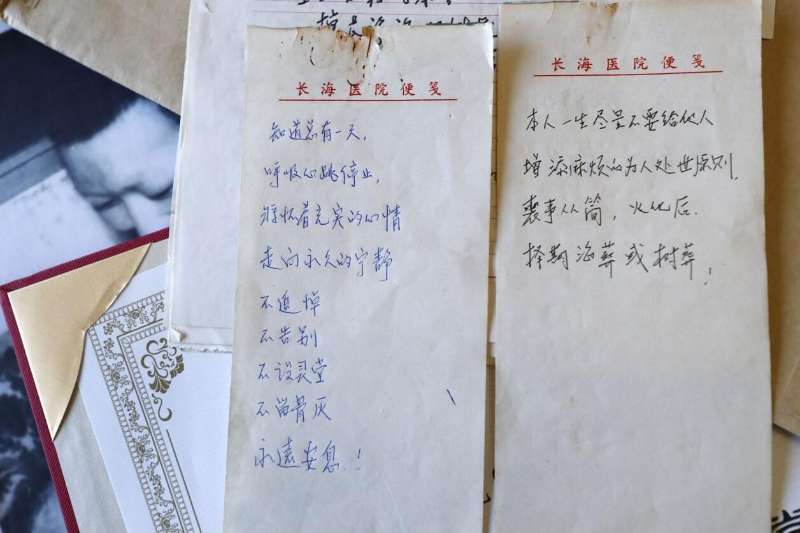 长海医院便笺
知道总有一天,
呼吸心跳停止,
将怀着充实的心情
走向永久的宁静
不追悼
不告别
不设灵堂
不留骨灰
永远安息!
长海医院便笺
本人一生尽量不要给他人
增添麻烦的为人处世原则,
丧事从简,火化后.
择期海葬或树葬!